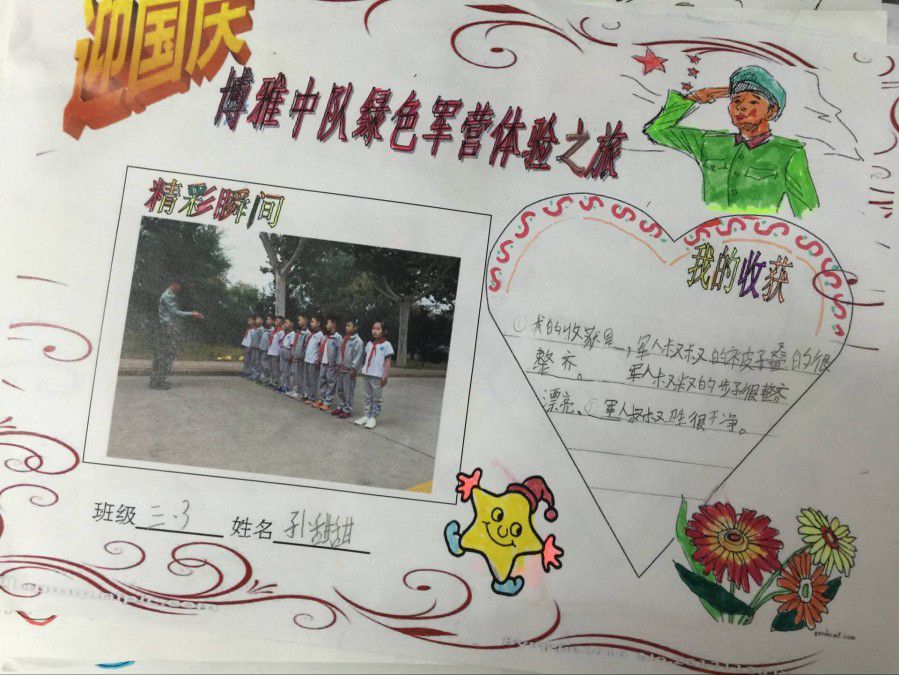 迎国庆
博雅中队绿色军营体验之旅
精彩瞬间
我的收获
①我的收获是,军人叔叔的被皮子叠的很
整齐。 军人叔叔的步子很整齐
漂亮。②军人叔叔卫生很干净。
班级 三.3 姓名 孙甜甜